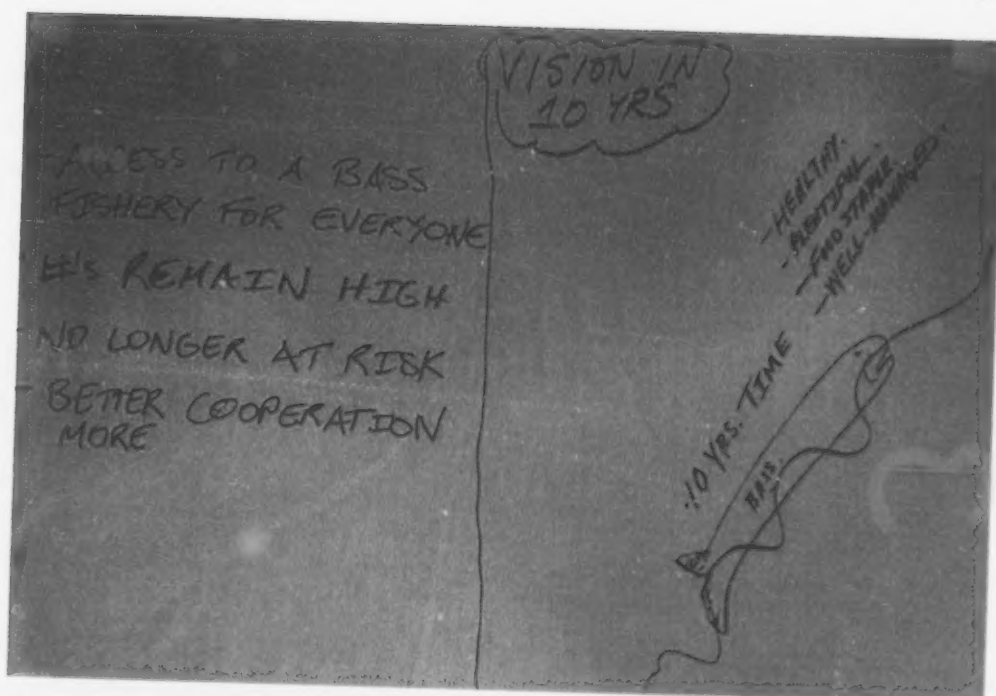 VISION IN
10 YRS
- ACCESS TO A BASS
FISHERY FOR EVERYONE
#'s REMAIN HIGH
NO LONGER AT RISK
- BETTER COOPERATION
MORE
- HEALTHY.
- PLENTIFUL.
- FOOD STAPLE
- WELL-MANAGED.
:10 YRS. TIME
BASS.